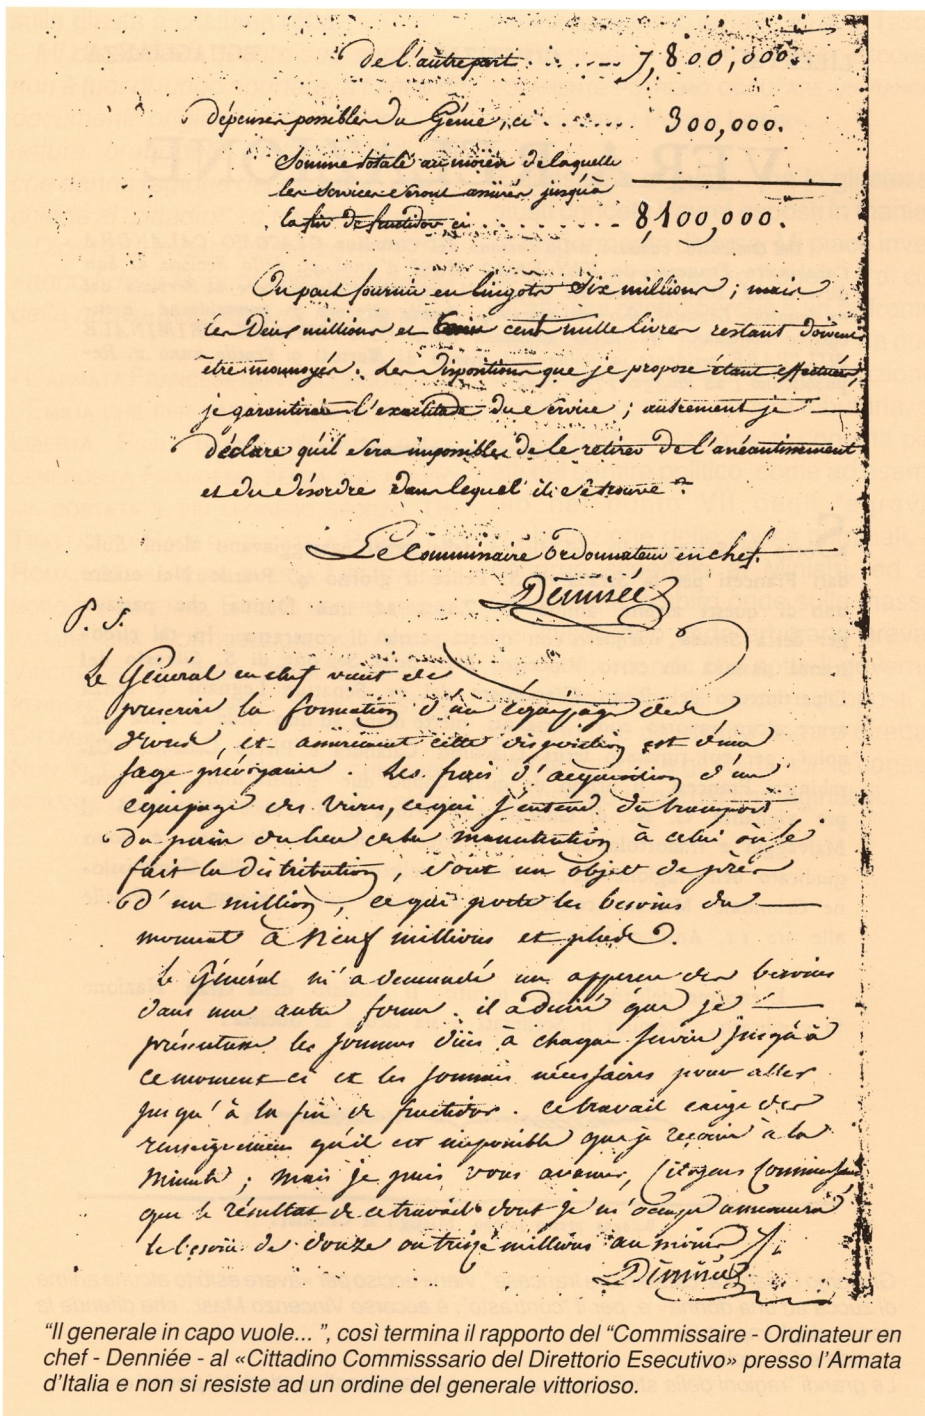 de l'autrepart . . . . . . . 7,800,000.
dépenses possibles du Génie, ci . . . . . . . 300,000.
Somme totale au moien de laquelle
les services seront assurés jusqu'à
la fin de fructidor ci . . . . . . . . . 8,100,000.
On peut fournir en lingots Six millions ; mais
les Deux millions et cent mille livres restant doivent
être monnoyés. Les Dispositions que je propose étant effectuées,
je garantirai l'exactitude du service ; autrement je
déclare qu'il sera impossible de le retirer de l'anéantissement
et du désordre dans lequel il se trouve
Le Commissaire Ordonnateur en chef.
Denniée
P. S.
Le Général en chef vient de
prescrire la formation d'un équipage de
et assurément cette disposition est d'une
sage prévoyance. Les frais d'acquisition d'un
equipage des vivres, ce qui s'entend du transport
du pain du lieu de la manutention à celui où se
fait la distribution, sont un objet de près
d'un million, ce qui porte les besoins du
moment à Neuf millions et plus.
le Général m'a demandé un apperçu des besoins
dans une autre forme. il a désiré que je
présentasse les sommes dües à chaque service jusqu'à
ce moment ci et les sommes nécessaires pour aller
jusqu'à la fin de fructidor. Ce travail exige des
renseignemens qu'il est impossible que je reçoive à la
minute ; mais je puis vous avancer, Citoyens Commissaires
que le résultat de ce travail dont je m'occupe annoncera
le besoin de douze ou treize millions au moins
Denniée
“Il generale in capo vuole... ”, così termina il rapporto del “Commissaire - Ordinateur en
chef - Denniée - al «Cittadino Commisssario del Direttorio Esecutivo» presso l'Armata
d'Italia e non si resiste ad un ordine del generale vittorioso.